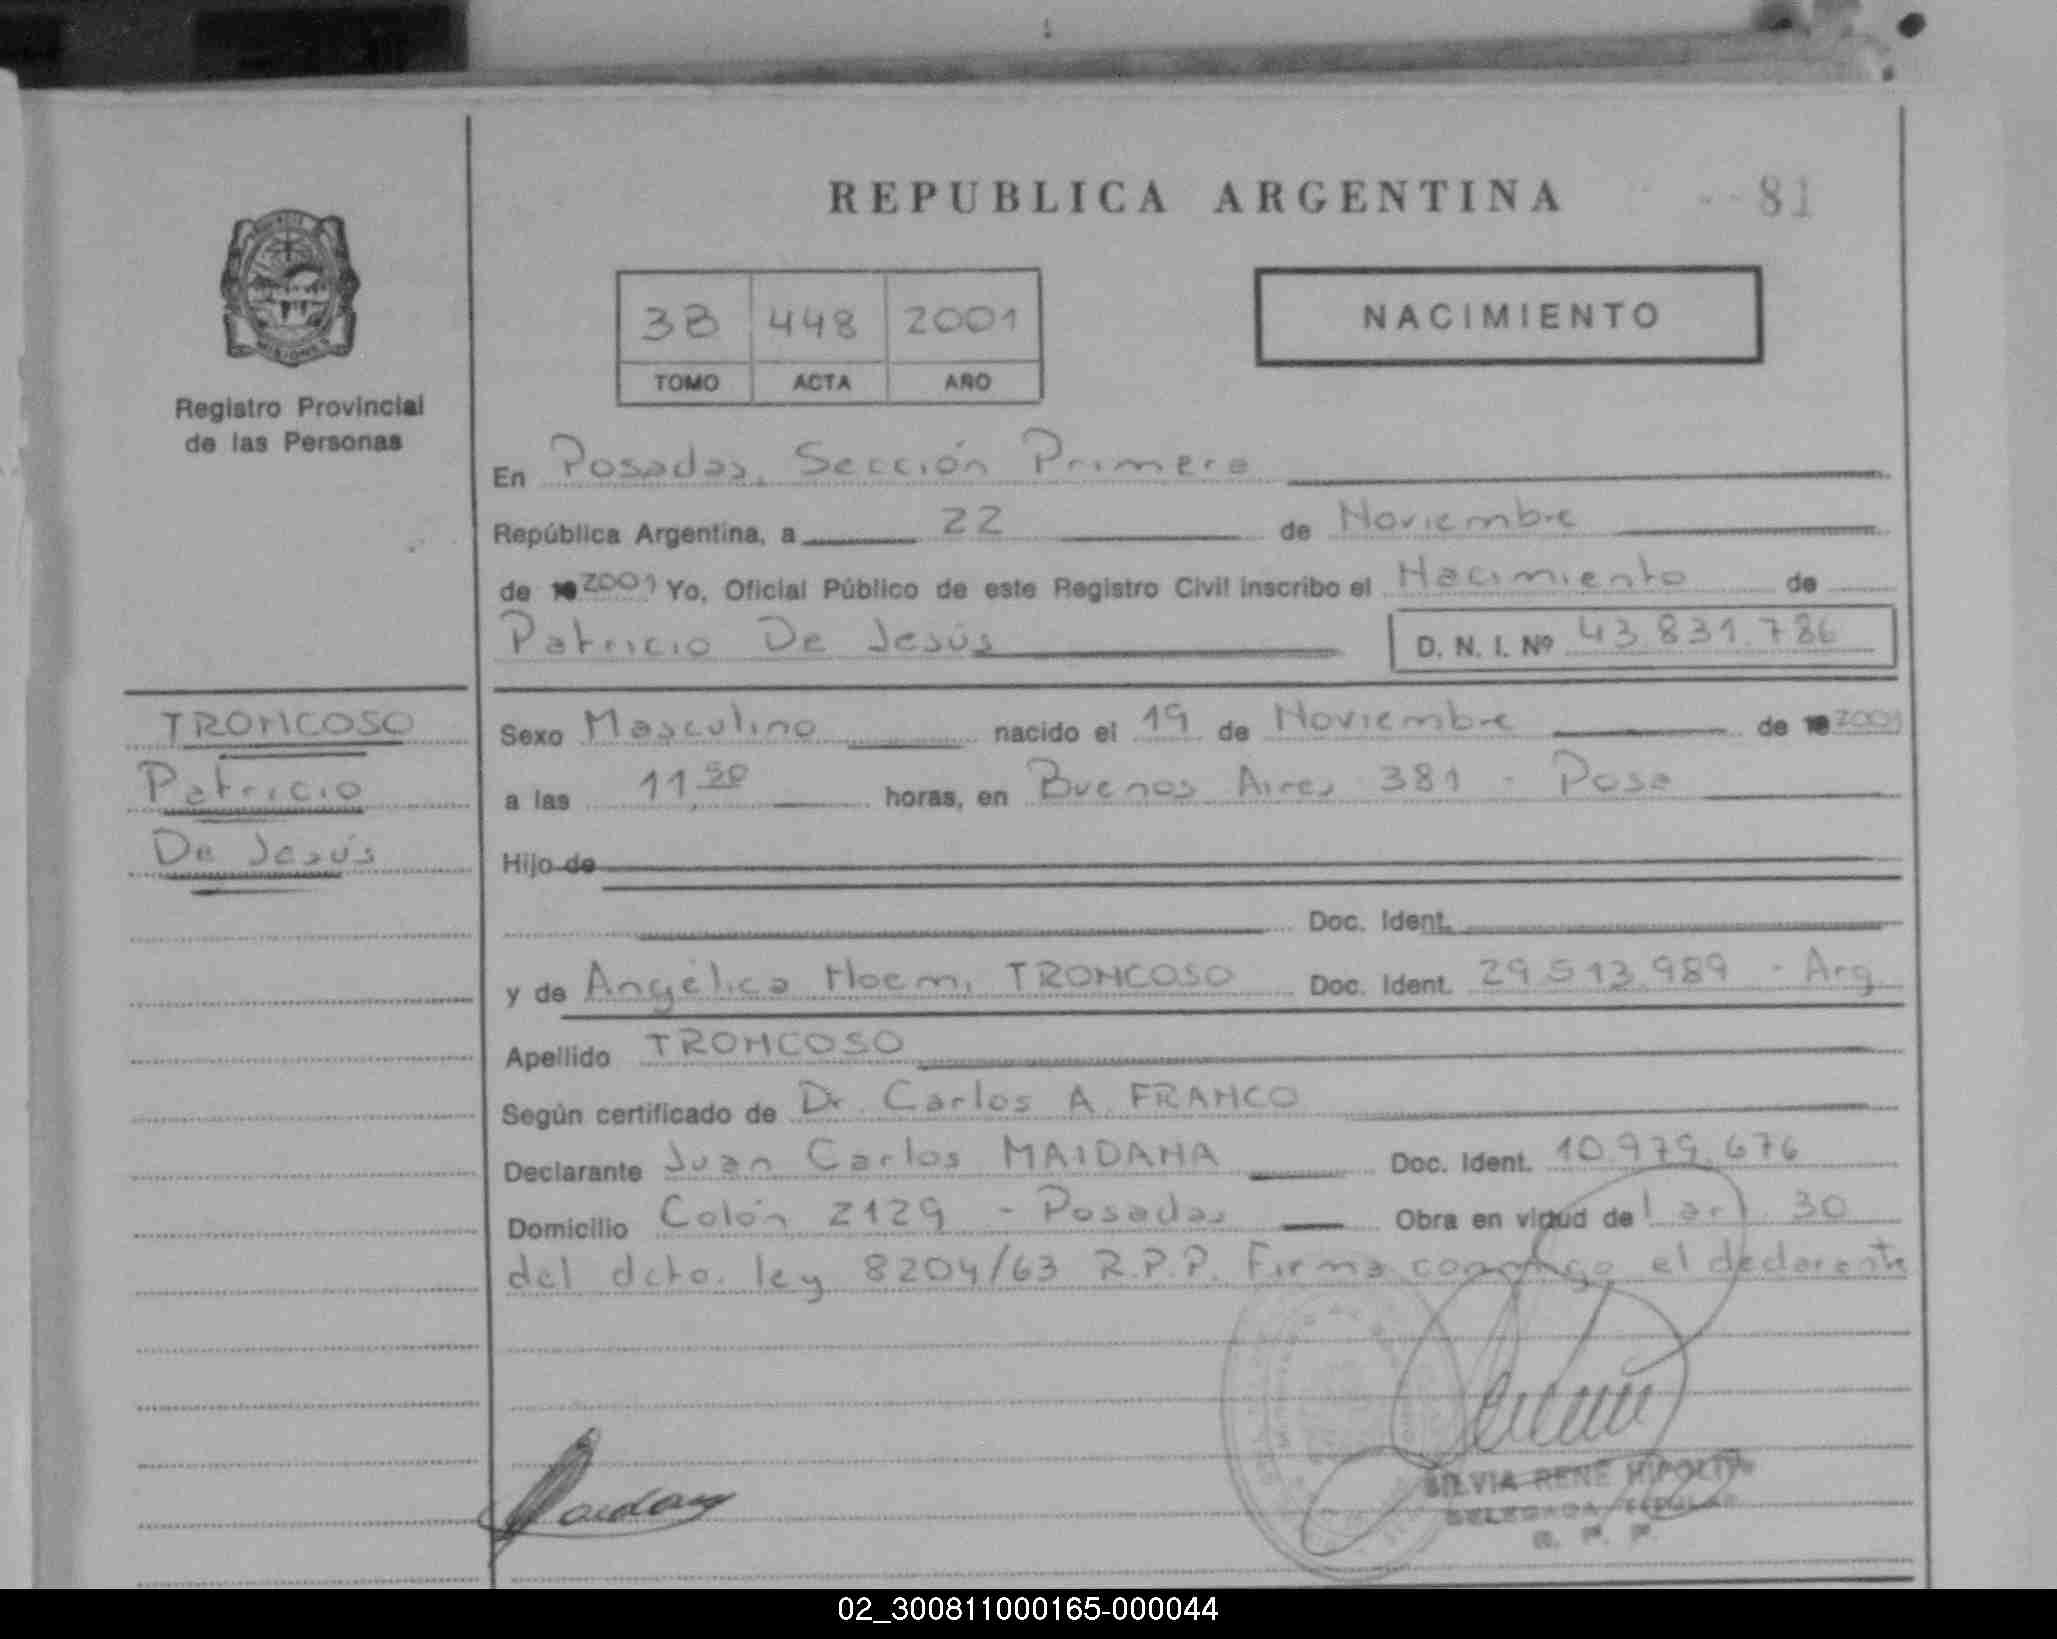 REPUBLICA ARGENTINA
81
MISIONES
Registro Provincial
de las Personas
3B 448 2001
TOMO ACTA AÑO
NACIMIENTO
En Posadas, Sección Primera
República Argentina, a 22 de Noviembre
de 19 2001 Yo, Oficial Público de este Registro Civil inscribo el Nacimiento de
Patricio De Jesús D. N. I. Nº 43.831.786
TRONCOSO
Patricio
De Jesús
Sexo Masculino nacido el 19 de Noviembre de 19 2001
a las 11,50 horas, en Buenos Aires 381 - Posa
Hijo de
Doc. Ident.
y de Angélica Noemi TRONCOSO Doc. Ident. 29.513.989 - Arg.
Apellido TRONCOSO
Según certificado de Dr. Carlos A. FRANCO
Declarante Juan Carlos MAIDANA Doc. Ident. 10.979.676
Domicilio Colón 2129 - Posadas Obra en virtud del art. 30
del dcto. ley 8204/63 R.P.P. Firma conmigo el declarante
SILVIA RENE HIPOLITO
DELEGADA TITULAR
R. P. P.
02_300811000165-000044